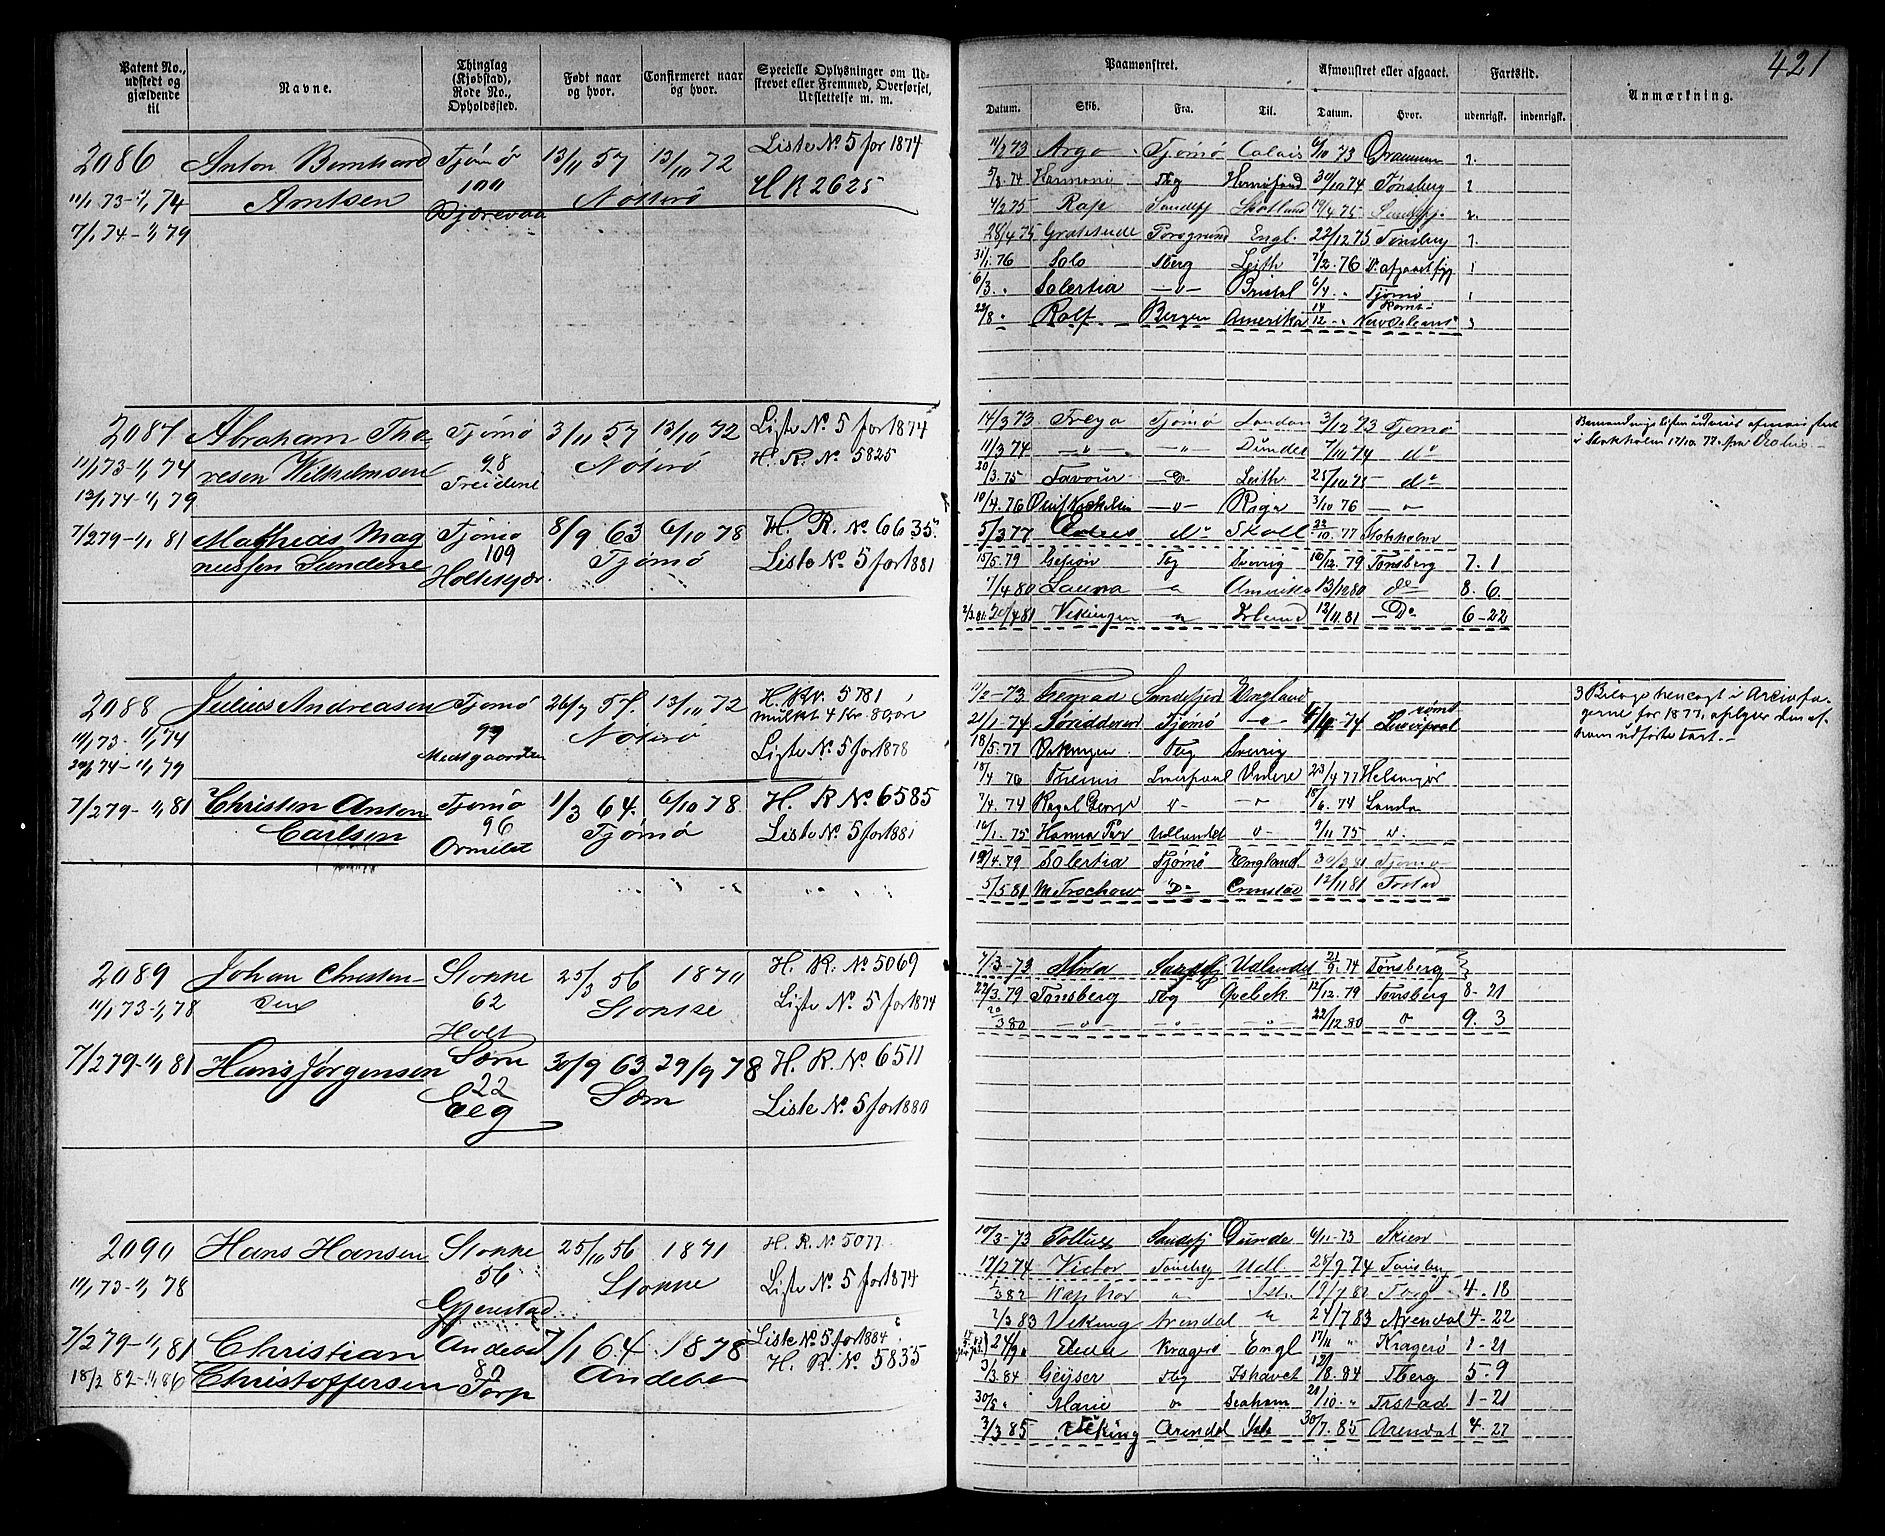 421
Patent No., udstedt og gjældende til
Navne.
Thinglag (Kjøbstad), Rode No., Opholdssted.
Født naar og hvor.
Confirmeret naar og hvor.
Specielle Oplysninger om Udstrevet eller Fremmed, Overførsel, Udslettelse m. m.
Paamønstret.
Afmønstret eller afgaaet.
Fartstid.
Anmærkning.
Datum. Skib. Fra. Til. Datum. Hvor. udenrigsk. indenrigsk.
2086 Anton Bernhard Tjömö 13/11 57 13/10 72 Liste No. 5 for 1874
11/1 73-1/1 74 Arntsen 100 Nötterö H R 2625
7/1 74-1/1 79
11/2 73 Argo Tjömö Calais 6/10 73 Drammen
5/3 74 Harmoni Tbg 30/10 74 Tønsberg
4/2 75 Rap Sandefj Skotland 19/4 75 Sandefj
28/4 75 Gratitude Porsgrund Engl. 22/12 75 Tønsberg
31/1 76 Solo Tberg Leith 7/2 76
6/3 " Solertia -"- Bristol 6/4 " Tjømø
22/8 " Rolf Bergen Amerika 14/12 " Rømt New Orleans
2087 Abraham Tho- Tjömö 3/11 57 13/10 72 Liste No. 5 for 1874
11/1 73-1/1 74 resen Wilhelmsen 98 Nöterö H. R. No. 5825
12/1 74-1/1 79
14/3 73 Freya Tjömö London 3/12 73 Tjømø
11/3 74 -"- -"- Dundee 7/10 74 do
20/3 75 Favour Do Leith 25/10 75 do
10/4 76 -"- Riga 3/10 76 -"-
5/3 77 do 22/10 77 Stokholm
i Stokholm 17/10 77 fra
7/2 79-1/1 81 Mathias Mag Tjömö 8/9 63 6/10 78 H. R. No. 6635
nussen Sundene 109 Tjömö Liste No. 5 for 1881
15/5 79 Gefion Tbg Sverrig 10/12 79 Tønsberg 7. 1
7/4 80 Laura " Amerika 13/12 80 do 8. 6
20/4 81 Vikingen " 12/11 81 Do 6-22
2088 Julius Andreasen Tjömö 26/7 57. 13/10 72 H. Rv. 5781
mulkt 4 Kr. 80 øre
11/1 73-1/1 74 99 Nöterö
Liste No. 5 for 1878
1/2-73 Sandefjord England
21/1-74 Tjömö -"- 74 rømt Liverpool
18/5 77 Vikingen Tbg Sverrig
18/4 76 Themis Liverpool 23/4 77 Helsingør
7/4 74 Royal George "- -" 18/6 74 London
16/1 75 Hanna Udlandet "- 9/11 75 "
3 Bilage henlagt i Arcivfa-
gerne for 1877,
ham udførte Fart.-
7/2 79-1/1 81 Christen Anton Tjömö 1/3 64. 6/10 78 H. R No. 6585
Carlsen 96 Tjömö Liste No. 5 for 1881
Ormelet
19/4 79 Solertia Tjömö England 30/3 81 Tjömö
5/5 81 Do 12/11 81 Frstad
2089 Johan Christen- Stokke 25/3 56 1870 H. R. No. 5069
11/1 73-1/1 78 sen 62 Stokke Liste No. 5 for 1874
Holt
7/3-73 Alma Sandefj Udlandet 21/9 74 Tønsberg
7/2 79-1/1 81 Hans Jørgensen Sæm 30/9 63 29/9 78 H. R. No. 6511
22 Sæm Liste No. 5 for 1880
22/3 79 Tønsberg Tbg Qvebek 12/12 79 Tønsberg 8-21
20/3 80 -"- -"- -"- 22/12 80 " 9. 3
2090 Hans Hansen Stokke 25/10 56 1871 H. R. No. 5077
11/1 73-1/1 78 56 Stokke Liste No. 5 for 1874
Gjenstad
10/3-73 Pollux Sandefj Dunde 6/11-73 Skien
17/2 74 Victor Tønsberg Udl. 28/9 74 Tønsberg
7/2 79-1/1 81 Christian Andebo 7/1 64 1878 Liste No. 5 for 1884
18/2 82-1/1 86 Christoffersen 80 Andebo H. R. No. 5835
Torp
1/3 82 Kap Nor " Ish. 19/7 82 Tbeg 4-18
1/3 83 Viking Arendal " 24/7 83 Arendal 4-22
24/9 " Kragerö Engl 17/11 " Kragerø 1-21
3/3 84 Geyser Tbg Ishavet 12/8 84 Tberg 5-9
30/8 " Marie " Seaham 21/10 " Frstad 1-21
3/3 85 Viking Arendal Ish 30/7 85 Arendal 4-27